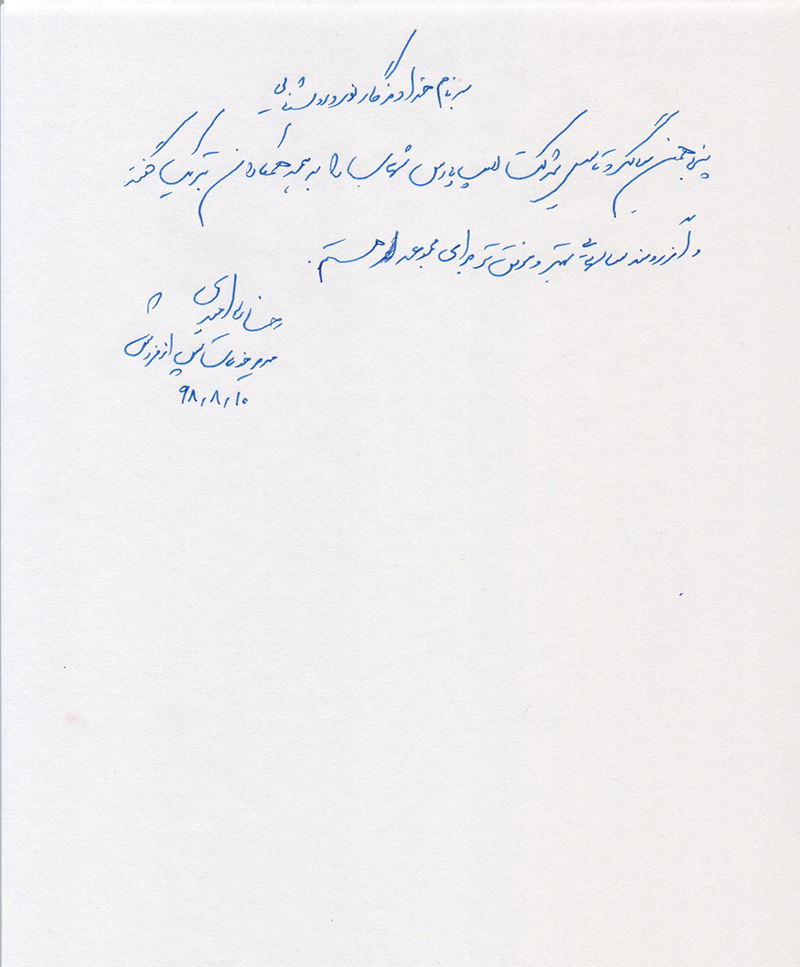 به نام خداوندگار نور و روشنایی
پنجاهمین سالگرد تاسیس شرکت لامپ پارس شهاب را به همه همکاران تبریک گفته
و آرزومند سالهای بهتر و موفق تر برای مجموعه هستم.
رضا احمدی
مدیر خدمات پس از فروش
۹۸٫۸٫۱۰